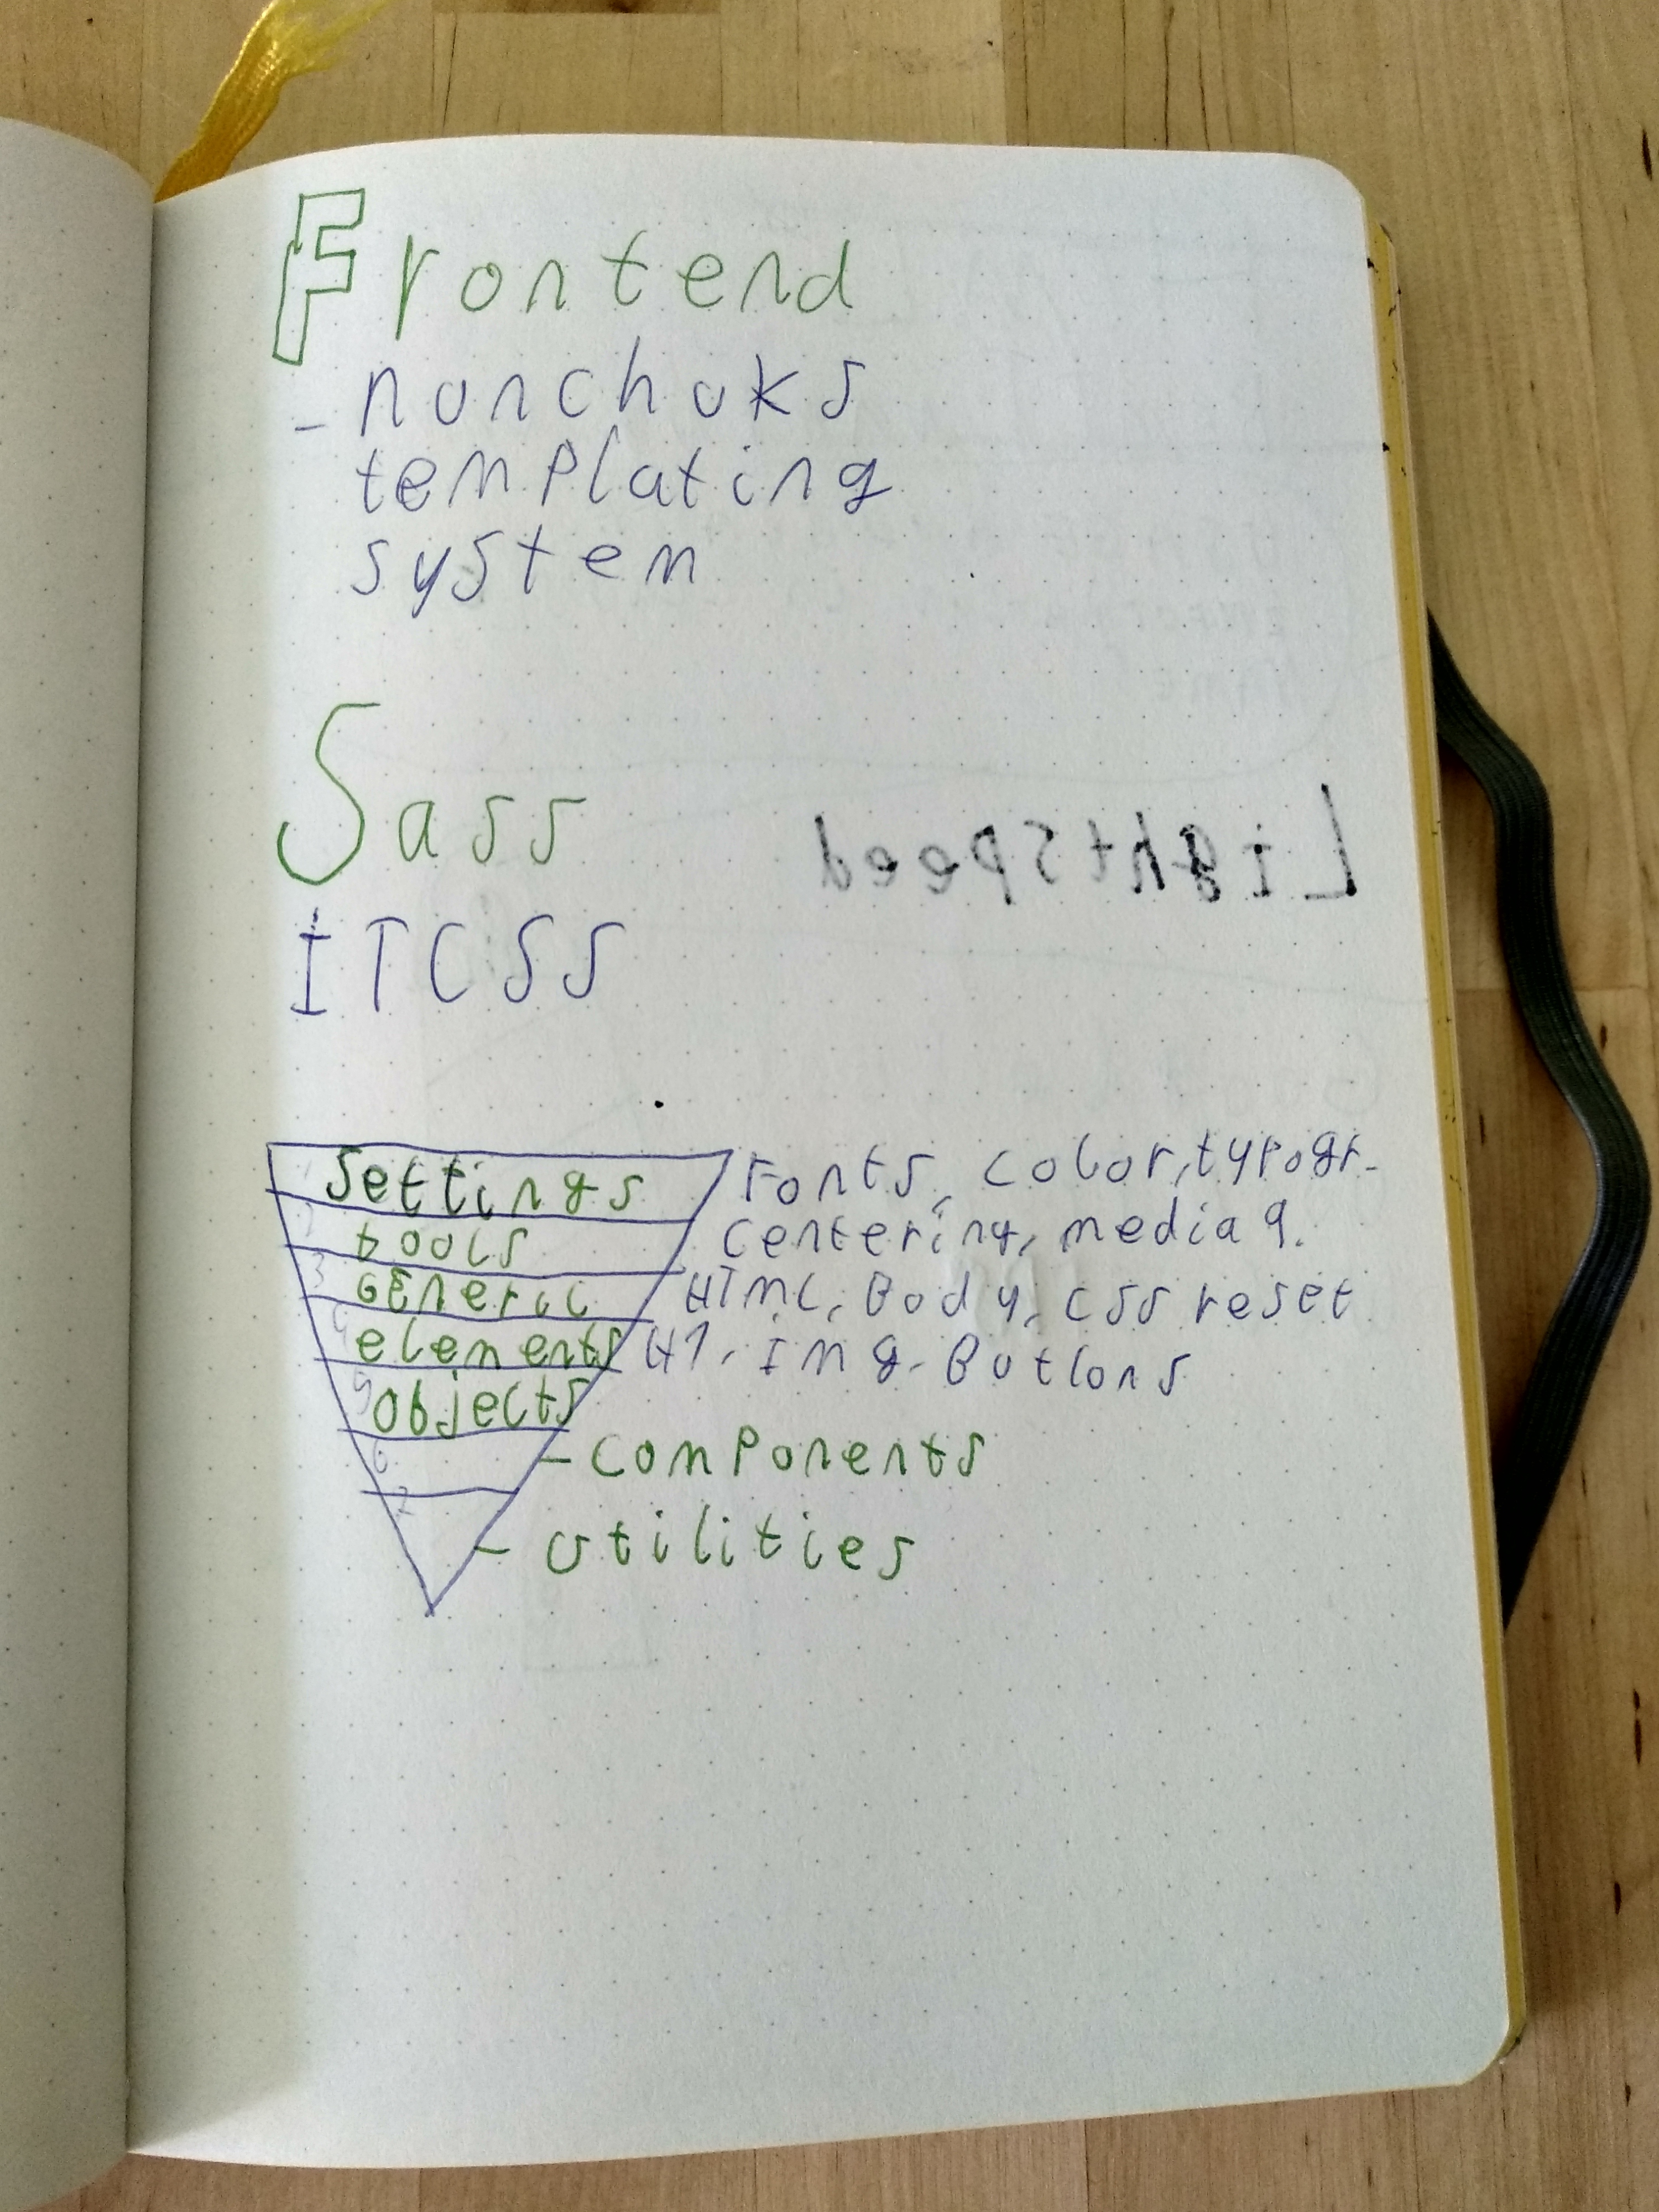 Frontend
- nunchuks
templating
system
Sass
LightSpeed
ITCSS
1 Settings Fonts, color, typogr.
2 tools centering, media q.
3 GEneric HTML, Body, css reset
4 elements H1, Img, Buttons
5 objects
6 - components
7 - utilities